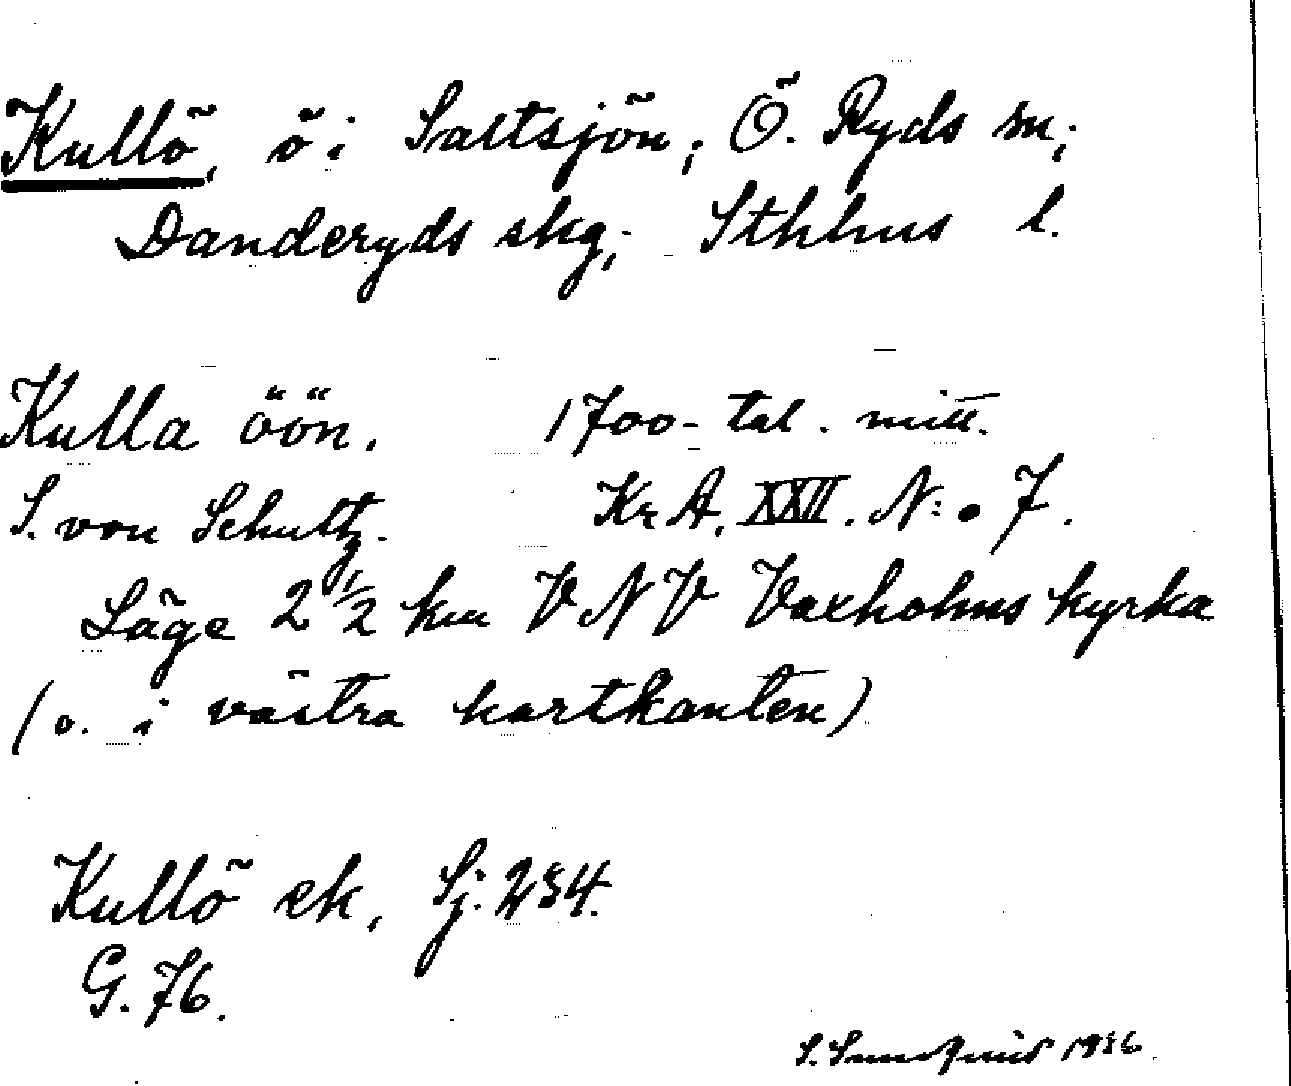 Kullö, ö i Saltsjön; Ö. Ryds sn;
Danderyds skg; Sthlms l.
Kulla öön. 1700-tal. mitt.
S. von Schultz. Kr A. XXII. N:o 7.
Läge 2 1/2 km VNV Vaxholms kyrka
(o. i västra kartkanten)
Kullö ek, Sj. 234.
G. 76.
S. 1936